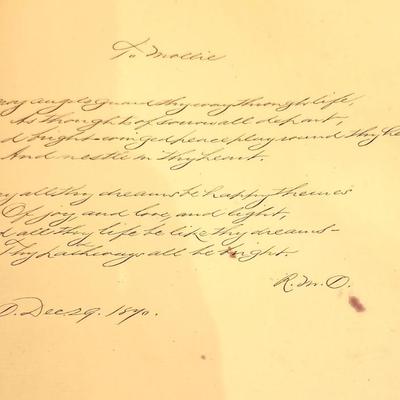 To Mollie
may angels guard thy way through life,
As thoughts of sorrow all depart,
d bright-winged peace play round thy he
And nestle in thy heart.
ay all thy dreams be happy themes
Of joy and love, and light,
d all thy life be like thy dreams–
Thy pathways all be bright.
R. M. O.
O. Dec. 29, 1890.